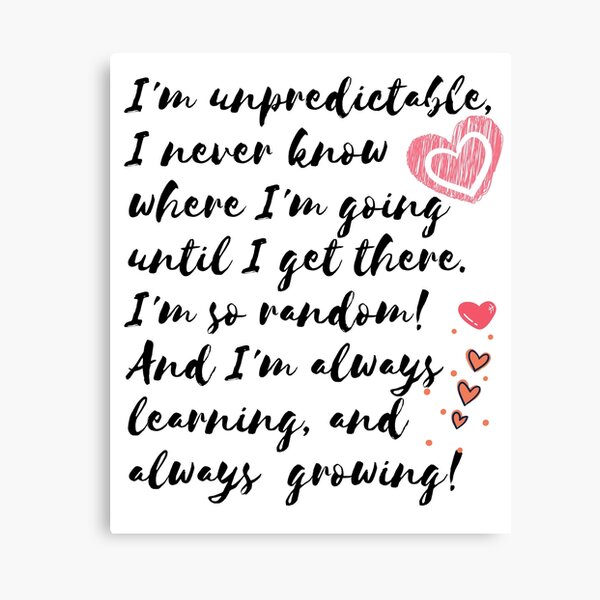 I'm unpredictable,
I never know
where I'm going
until I get there.
I'm so random!
And I'm always
learning, and
always growing!